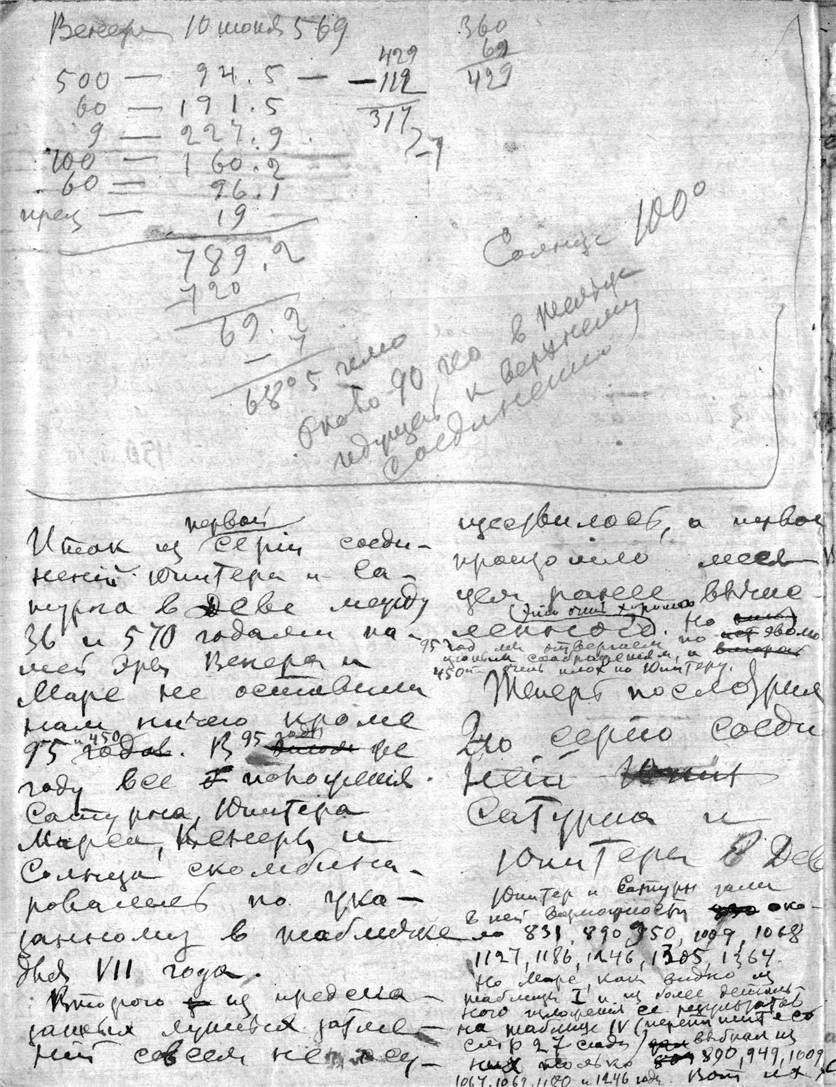 Венера 10 июня 569
500 — 94.5 —
60 — 191.5
9 — 227.9
100 — 160.2
60 = 96.1
прец — 19
789.2
720
69.2
— 7
68°5
429
—112
317
—7
360
69
429
Солнце 100°
около 90, в
идущей к верхнему
соединению
Итак из первой серии соеди-
нений Юпитера и Са-
турна в Деве между
36 и 570 годами на-
шей Эры Венера и
Марс не оставили
нам ничего кроме
95 и 450 годов. В 95 году
году все положения
Сатурна, Юпитера
Марса, Венеры и
Солнца скомбини-
ровались по ука-
занному в таблице
для VII года.
Второго из предска-
занных лунных затме-
ний совсем не осу-
ществилось, а первое
произошло меся-
цем ранее вычис-
ленного. (Это очень хорошо) Но
95 год мы отвергаем по эволю-
ционным соображениям, а
450 — очень плох по Юпитеру.
Теперь посмотрим
2ю серию соеди
нений
Сатурна и
Юпитера в Деве
Юпитер и Сатурн дали
в ней возможности око-
ло 831, 890, 950, 1009, 1068
1127, 1186, 1246, 1305, 1364.
Но Марс, как видно из
таблицы I и из более деталь-
ного изложения её результатов
на таблице IV
стр 27 сзади) выбрал из
них только 890, 949, 1009,
1067, 1069, 1180 и 1246 годы. Вот их